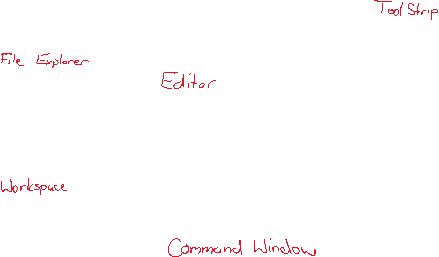 Tool Strip
File Explorer
Editor
Workspace
Command Window